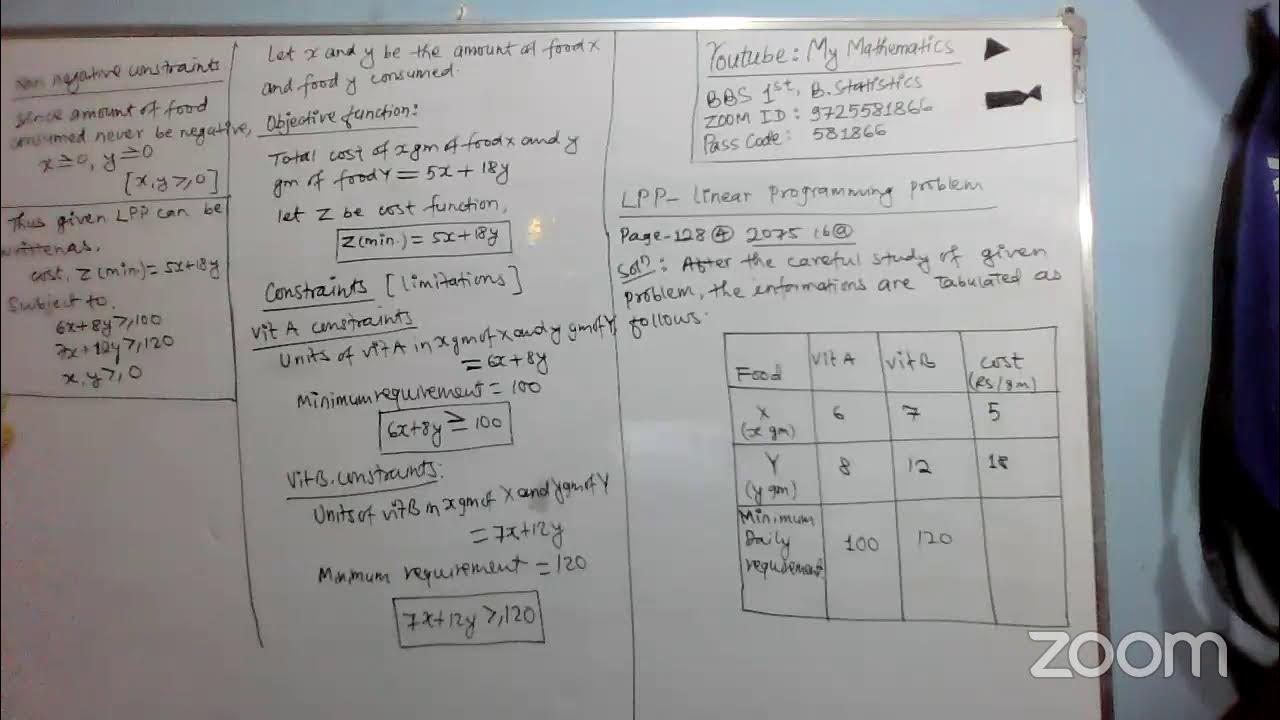 Youtube: My Mathematics
BBS 1st, B. Statistics
ZOOM ID: 9725581866
Pass Code: 581866
LPP- linear programming problem
Page-128 ④ 2075 16 ⓐ
Solⁿ: After the careful study of given
problem, the informations are tabulated as
follows:
Food VitA VitB Cost (Rs/gm)
X (x gm) 6 7 5
Y (y gm) 8 12 18
Minimum Daily requirement 100 120
Let x and y be the amount of food x
and food y consumed.
Objective function:
Total cost of x gm of food x and y
gm of food Y = 5x + 18y
let Z be cost function,
Z(min.) = 5x+18y
Constraints [limitations]
Vit A constraints
Units of vit A in x gm of X and y gm of Y
= 6x+8y
Minimum requirement = 100
6x+8y ≥ 100
Vit B. constraints:
Units of vit B in x gm of X and y gm of Y
= 7x+12y
Minimum requirement = 120
7x+12y ≥ 120
Non negative constraints
Since amount of food
consumed never be negative,
x ≥ 0, y ≥ 0
[x, y ≥ 0]
Thus given LPP can be
written as.
cost, Z (min) = 5x+18y
Subject to,
6x+8y ≥ 100
7x+12y ≥ 120
x, y ≥ 0
zoom